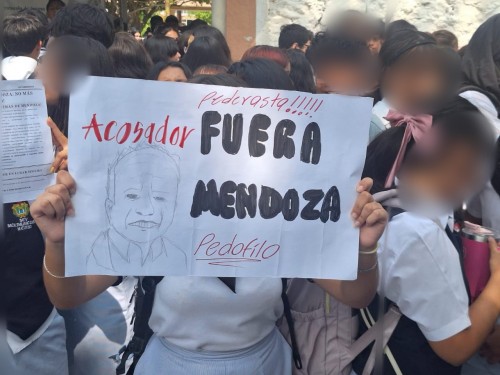 Pederasta!!!!!
Acosador
FUERA
MENDOZA
Pedofilo